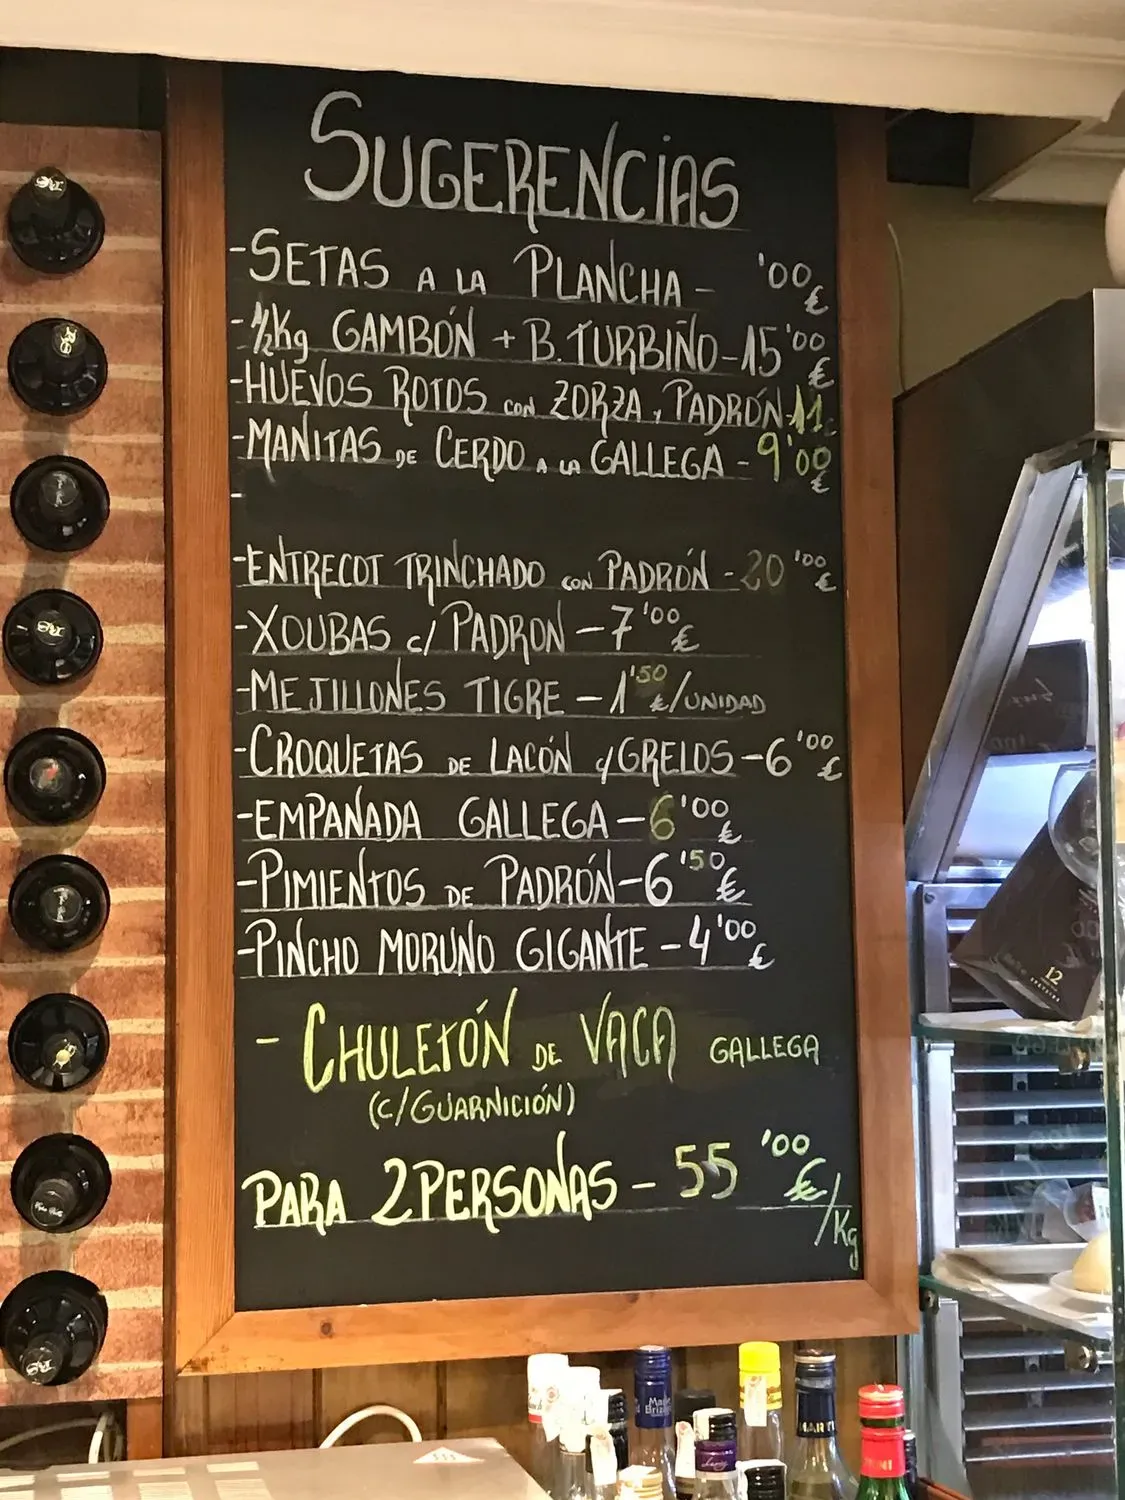 SUGERENCIAS
-SETAS A LA PLANCHA - '00 €
-1/2Kg GAMBÓN + B. TURBIÑO-15'00 €
-HUEVOS ROTOS CON ZORZA y PADRÓN-11
-MANITAS DE CERDO A LA GALLEGA - 9'00 €
-
-ENTRECOT TRINCHADO CON PADRÓN - 20'00 €
-XOUBAS c/ PADRON - 7'00 €
-MEJILLONES TIGRE - 1'50 €/UNIDAD
-CROQUETAS DE LACÓN y GRELOS - 6'00 €
-EMPANADA GALLEGA - 6'00 €
-PIMIENTOS DE PADRÓN - 6'50 €
-PINCHO MORUNO GIGANTE - 4'00 €
- CHULETÓN DE VACA GALLEGA
(C/GUARNICIÓN)
PARA 2 PERSONAS - 55'00 €/Kg
12